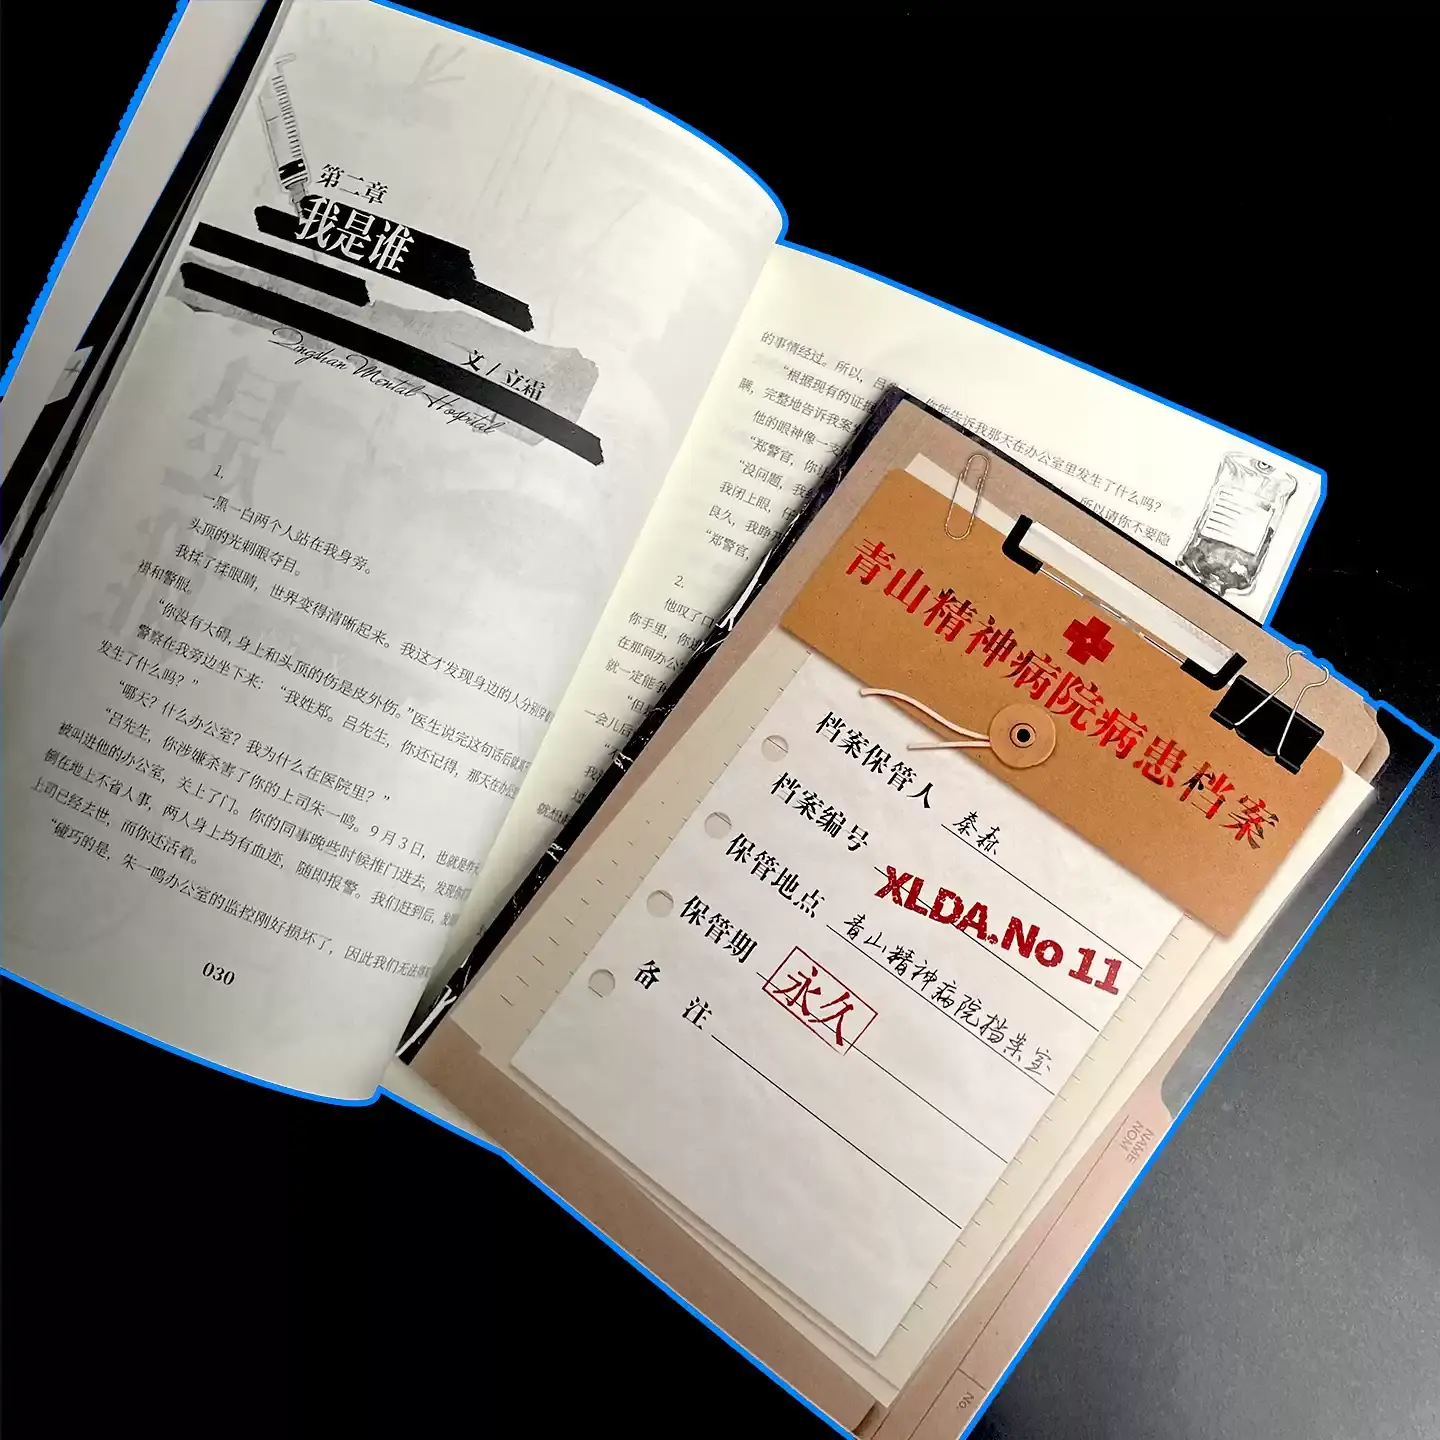 第二章
我是谁
文 / 立霜
Qingshan Mental Hospital
1.
一黑一白两个人站在我身旁。
头顶的光刺眼夺目。
我揉了揉眼睛，世界变得清晰起来。我这才发现身边的人分别穿着
褂和警服。
“你没有大碍，身上和头顶的伤是皮外伤。”医生说完这句话后就离开
警察在我旁边坐下来：“我姓郑。吕先生，你还记得，那天在办公室
发生了什么吗？”
“哪天？什么办公室？我为什么在医院里？”
“吕先生，你涉嫌杀害了你的上司朱一鸣。9月3日，也就是昨天
被叫进他的办公室，关上了门。你的同事晚些时候推门进去，发现你们
倒在地上不省人事，两人身上均有血迹，随即报警。我们赶到后，发现
上司已经去世，而你还活着。
“碰巧的是，朱一鸣办公室的监控刚好损坏了，因此我们无法得知
030
的事情经过。所以，吕 你能告诉我那天在办公室里发生了什么吗？
“根据现有的证据 所以请你不要隐
瞒，完整地告诉我案
他的眼神像一支
“郑警官，你
“没问题，我
我闭上眼，仔
良久，我睁开
“郑警官，
2.
他叹了口
你手里，你
在那间办公
就一定能
“但
一会儿后
就想
青山精神病院病患档案
档案保管人 秦森
档案编号 XLDA.No 11
保管地点 青山精神病院档案室
保管期 永久
备 注
NAME
NOM
No.